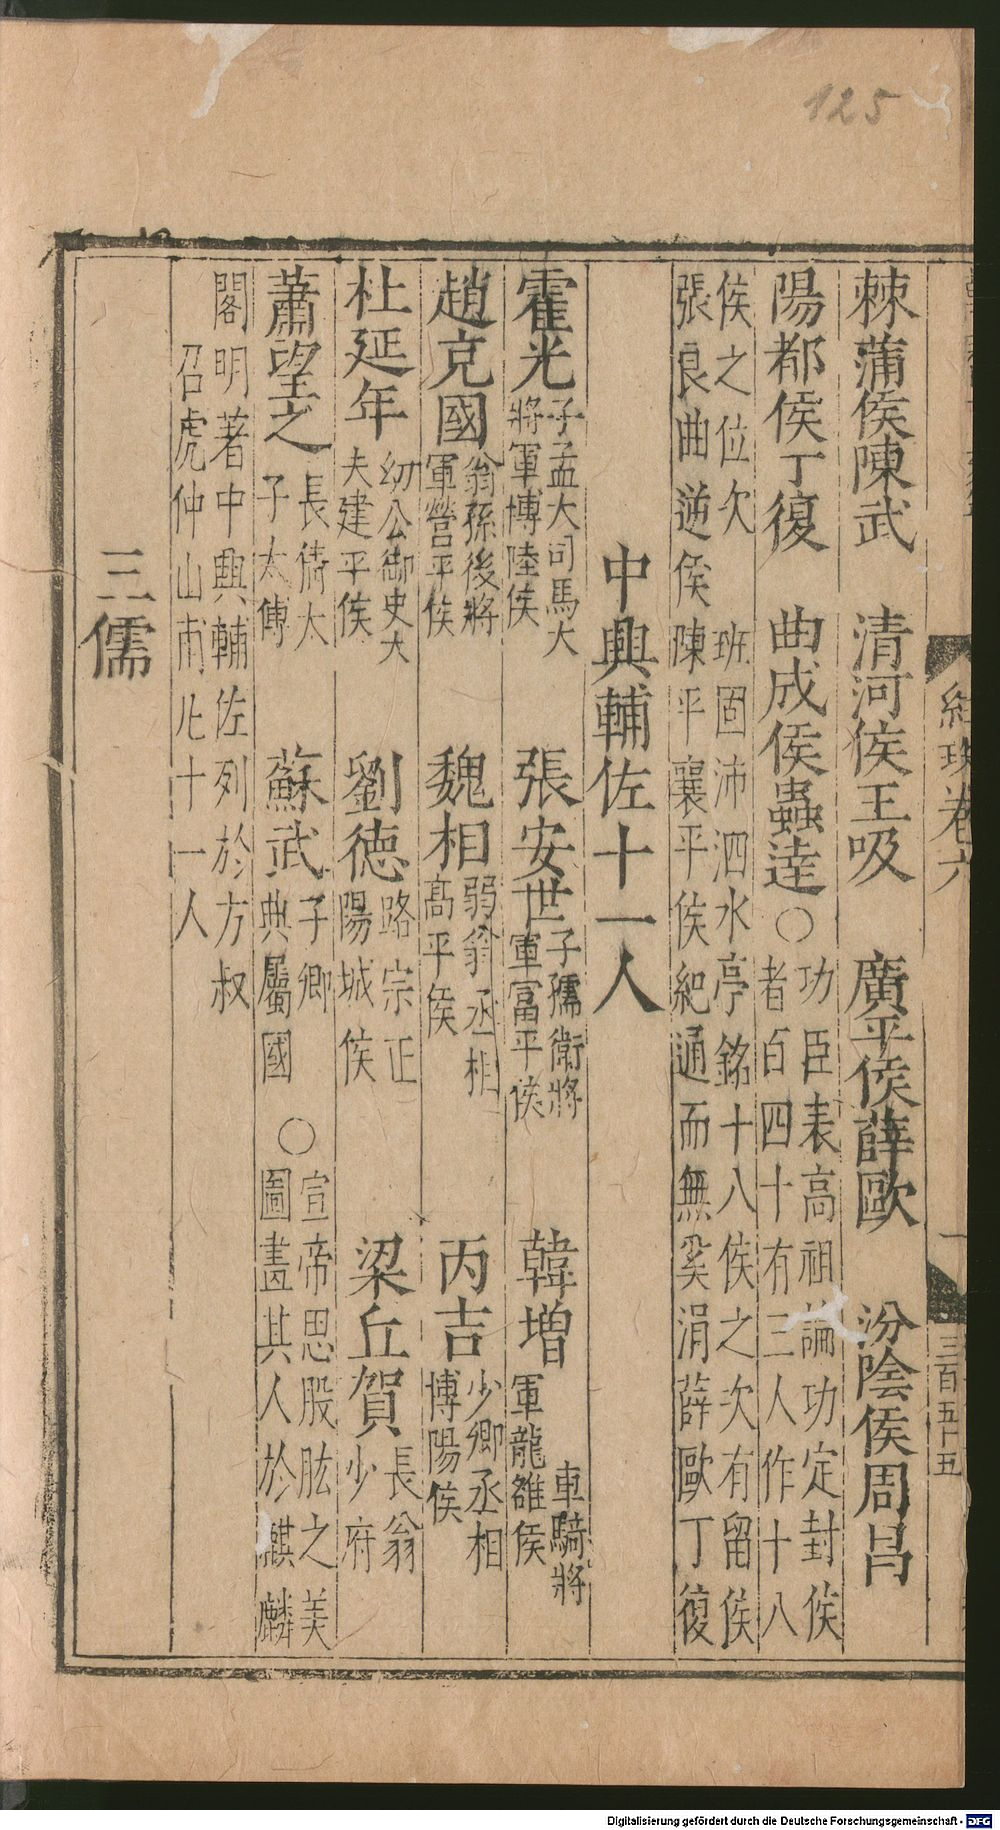 125
棘蒲侯陳武　清河侯王吸　廣平侯薛歐　汾陰侯周昌
陽都侯丁復　曲成侯蟲達○功臣表高祖論功定封侯
者百四十有三人作十八
侯之位次　班固沛泗水亭銘十八侯之次有留侯
張良曲逆侯陳平襄平侯紀通而無奚涓薛歐丁復
中興輔佐十一人
霍光子孟大司馬大
將軍博陸侯　張安世子孺衛將
軍富平侯　韓增車騎將
軍龍雒侯
趙充國翁孫後將
軍營平侯　魏相弱翁丞相
高平侯　丙吉少卿丞相
博陽侯
杜延年幼公御史大
夫建平侯　劉德路宗正
陽城侯　梁丘賀長翁
少府
蕭望之長倩太
子太傅　蘇武子卿
典屬國　○宣帝思股肱之美
圖畫其人於麒麟
閣明著中興輔佐列於方叔
召虎仲山甫凡十一人
三儒
紺珠卷六
三百五十五
Digitalisierung gefördert durch die Deutsche Forschungsgemeinschaft - DFG